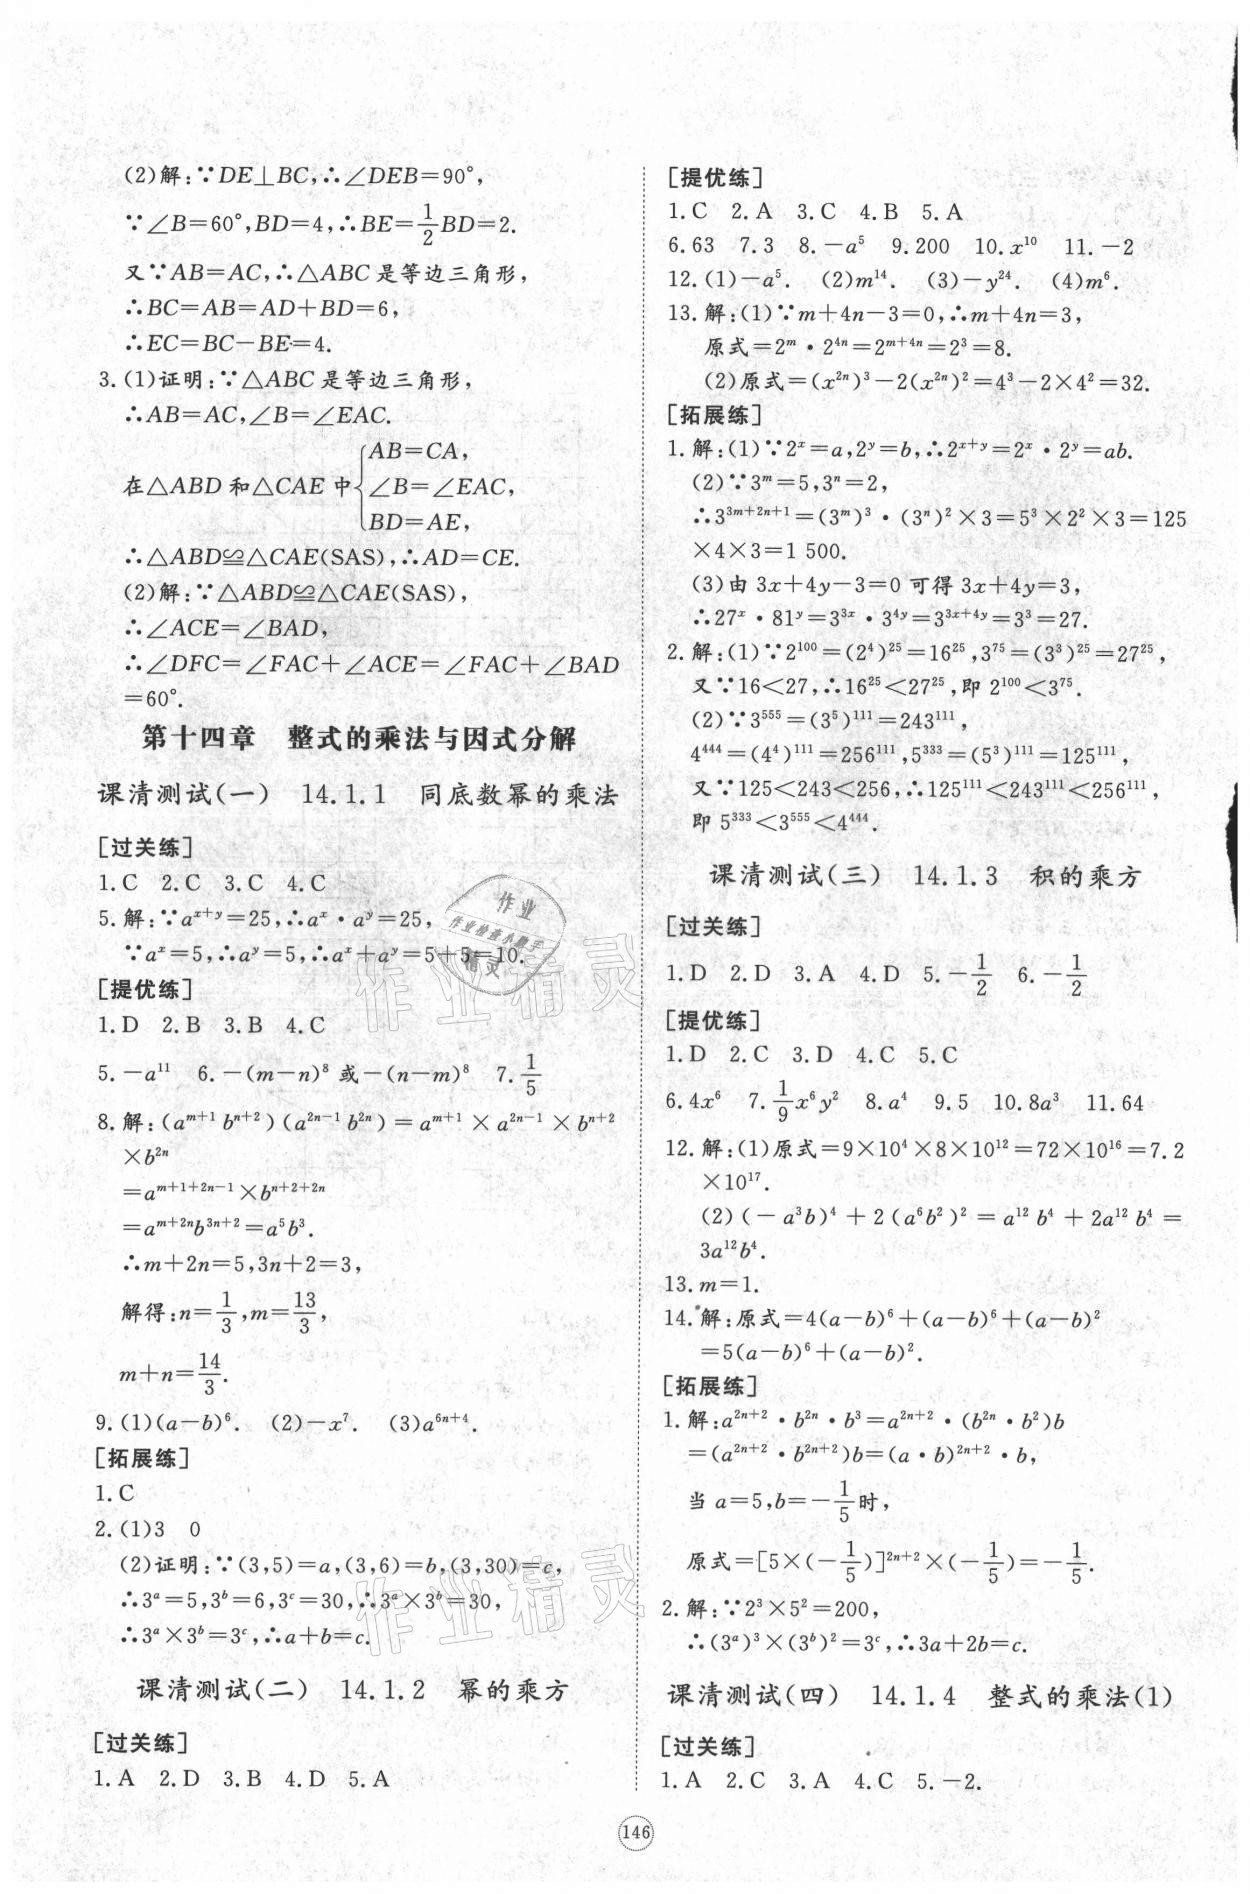 (2)解:∵DE⊥BC,∴∠DEB=90°,
∵∠B=60°,BD=4,∴BE=1/2BD=2.
又∵AB=AC,∴△ABC是等边三角形,
∴BC=AB=AD+BD=6,
∴EC=BC-BE=4.
3.(1)证明:∵△ABC是等边三角形,
∴AB=AC,∠B=∠EAC.
在△ABD和△CAE中{AB=CA,
∠B=∠EAC,
BD=AE,
∴△ABD≌△CAE(SAS),∴AD=CE.
(2)解:∵△ABD≌△CAE(SAS),
∴∠ACE=∠BAD,
∴∠DFC=∠FAC+∠ACE=∠FAC+∠BAD
=60°.
第十四章 整式的乘法与因式分解
课清测试(一) 14.1.1 同底数幂的乘法
[过关练]
1.C 2.C 3.C 4.C
5.解:∵a^{x+y}=25,∴a^x·a^y=25,
∵a^x=5,∴a^y=5,∴a^x+a^y=5+5=10.
[提优练]
1.D 2.B 3.B 4.C
5.-a^{11} 6.-(m-n)^8或-(n-m)^8 7.1/5
8.解:(a^{m+1}b^{n+2})(a^{2n-1}b^{2n})=a^{m+1}×a^{2n-1}×b^{n+2}
×b^{2n}
=a^{m+1+2n-1}×b^{n+2+2n}
=a^{m+2n}b^{3n+2}=a^5b^3.
∴m+2n=5,3n+2=3,
解得:n=1/3,m=13/3,
m+n=14/3.
9.(1)(a-b)^6. (2)-x^7. (3)a^{6n+4}.
[拓展练]
1.C
2.(1)3 0
(2)证明:∵(3,5)=a,(3,6)=b,(3,30)=c,
∴3^a=5,3^b=6,3^c=30,∴3^a×3^b=30,
∴3^a×3^b=3^c,∴a+b=c.
课清测试(二) 14.1.2 幂的乘方
[过关练]
1.A 2.D 3.B 4.D 5.A
[提优练]
1.C 2.A 3.C 4.B 5.A
6.63 7.3 8.-a^5 9.200 10.x^{10} 11.-2
12.(1)-a^5. (2)m^{14}. (3)-y^{24}. (4)m^6.
13.解:(1)∵m+4n-3=0,∴m+4n=3,
原式=2^m·2^{4n}=2^{m+4n}=2^3=8.
(2)原式=(x^{2n})^3-2(x^{2n})^2=4^3-2×4^2=32.
[拓展练]
1.解:(1)∵2^x=a,2^y=b,∴2^{x+y}=2^x·2^y=ab.
(2)∵3^m=5,3^n=2,
∴3^{3m+2n+1}=(3^m)^3·(3^n)^2×3=5^3×2^2×3=125
×4×3=1 500.
(3)由3x+4y-3=0可得3x+4y=3,
∴27^x·81^y=3^{3x}·3^{4y}=3^{3x+4y}=3^3=27.
2.解:(1)∵2^{100}=(2^4)^{25}=16^{25},3^{75}=(3^3)^{25}=27^{25},
又∵16<27,∴16^{25}<27^{25},即2^{100}<3^{75}.
(2)∵3^{555}=(3^5)^{111}=243^{111},
4^{444}=(4^4)^{111}=256^{111},5^{333}=(5^3)^{111}=125^{111},
又∵125<243<256,∴125^{111}<243^{111}<256^{111},
即5^{333}<3^{555}<4^{444}.
课清测试(三) 14.1.3 积的乘方
[过关练]
1.D 2.D 3.A 4.D 5.-1/2 6.-1/2
[提优练]
1.D 2.C 3.D 4.C 5.C
6.4x^6 7.1/9x^6y^2 8.a^4 9.5 10.8a^3 11.64
12.解:(1)原式=9×10^4×8×10^{12}=72×10^{16}=7.2
×10^{17}.
(2)(-a^3b)^4+2(a^6b^2)^2=a^{12}b^4+2a^{12}b^4=
3a^{12}b^4.
13.m=1.
14.解:原式=4(a-b)^6+(a-b)^6+(a-b)^2
=5(a-b)^6+(a-b)^2.
[拓展练]
1.解:a^{2n+2}·b^{2n}·b^3=a^{2n+2}·(b^{2n}·b^2)b
=(a^{2n+2}·b^{2n+2})b=(a·b)^{2n+2}·b,
当a=5,b=-1/5时,
原式=[5×(-1/5)]^{2n+2}×(-1/5)=-1/5.
2.解:∵2^3×5^2=200,
∴(3^a)^3×(3^b)^2=3^c,∴3a+2b=c.
课清测试(四) 14.1.4 整式的乘法(1)
[过关练]
1.A 2.C 3.A 4.C 5.-2.
146
作业
作业检查小助手
精灵
作业精灵
作业精灵